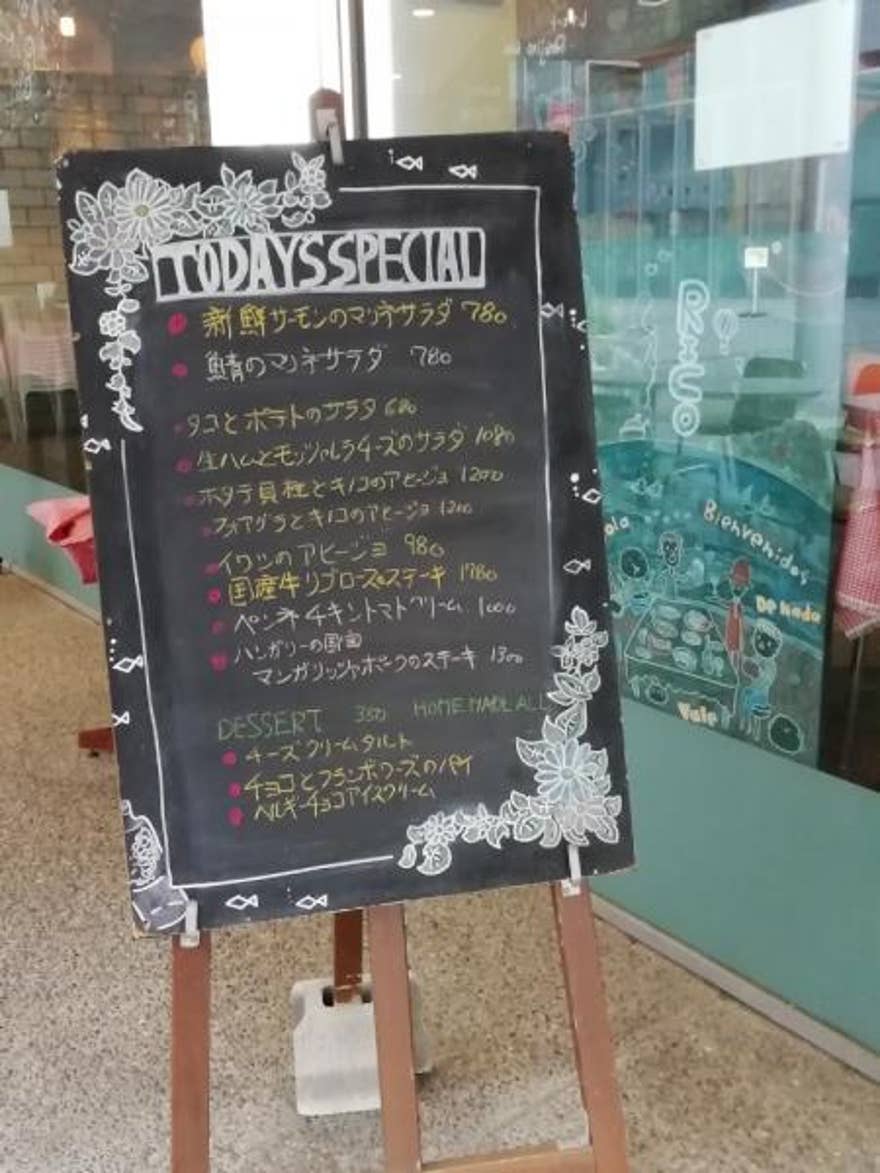 TODAYS SPECIAL
新鮮サーモンのマリネサラダ 780
鯖のマリネサラダ 780
タコとポテトのサラダ 680
生ハムとモッツァレラチーズのサラダ 1080
ホタテ貝柱とキノコのアヒージョ 1200
フォアグラとキノコのアヒージョ 1200
イワシのアヒージョ 980
国産牛リブロースステーキ 1780
ペンネチキントマトクリーム 1000
ハンガリーの国宝
マンガリッツァポークのステーキ 1300
DESSERT 350 HOMEMADE ALL
チーズクリームタルト
チョコとフランボワーズのパイ
ベルギーチョコアイスクリーム
Bienvenidos
De Nada
Vale!